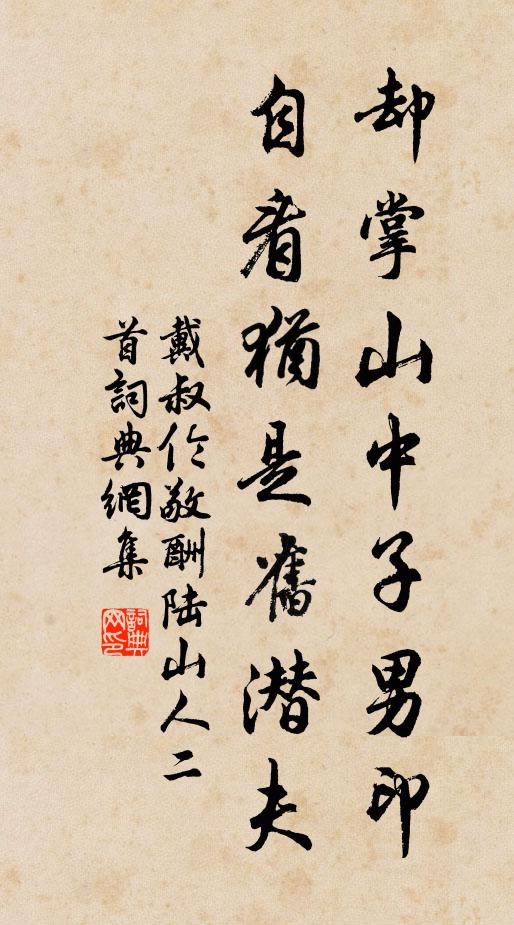 却掌山中子男印
自看猶是舊潜夫
戴叔伦敬酬陆山人二
首詞典網集
詞典網印